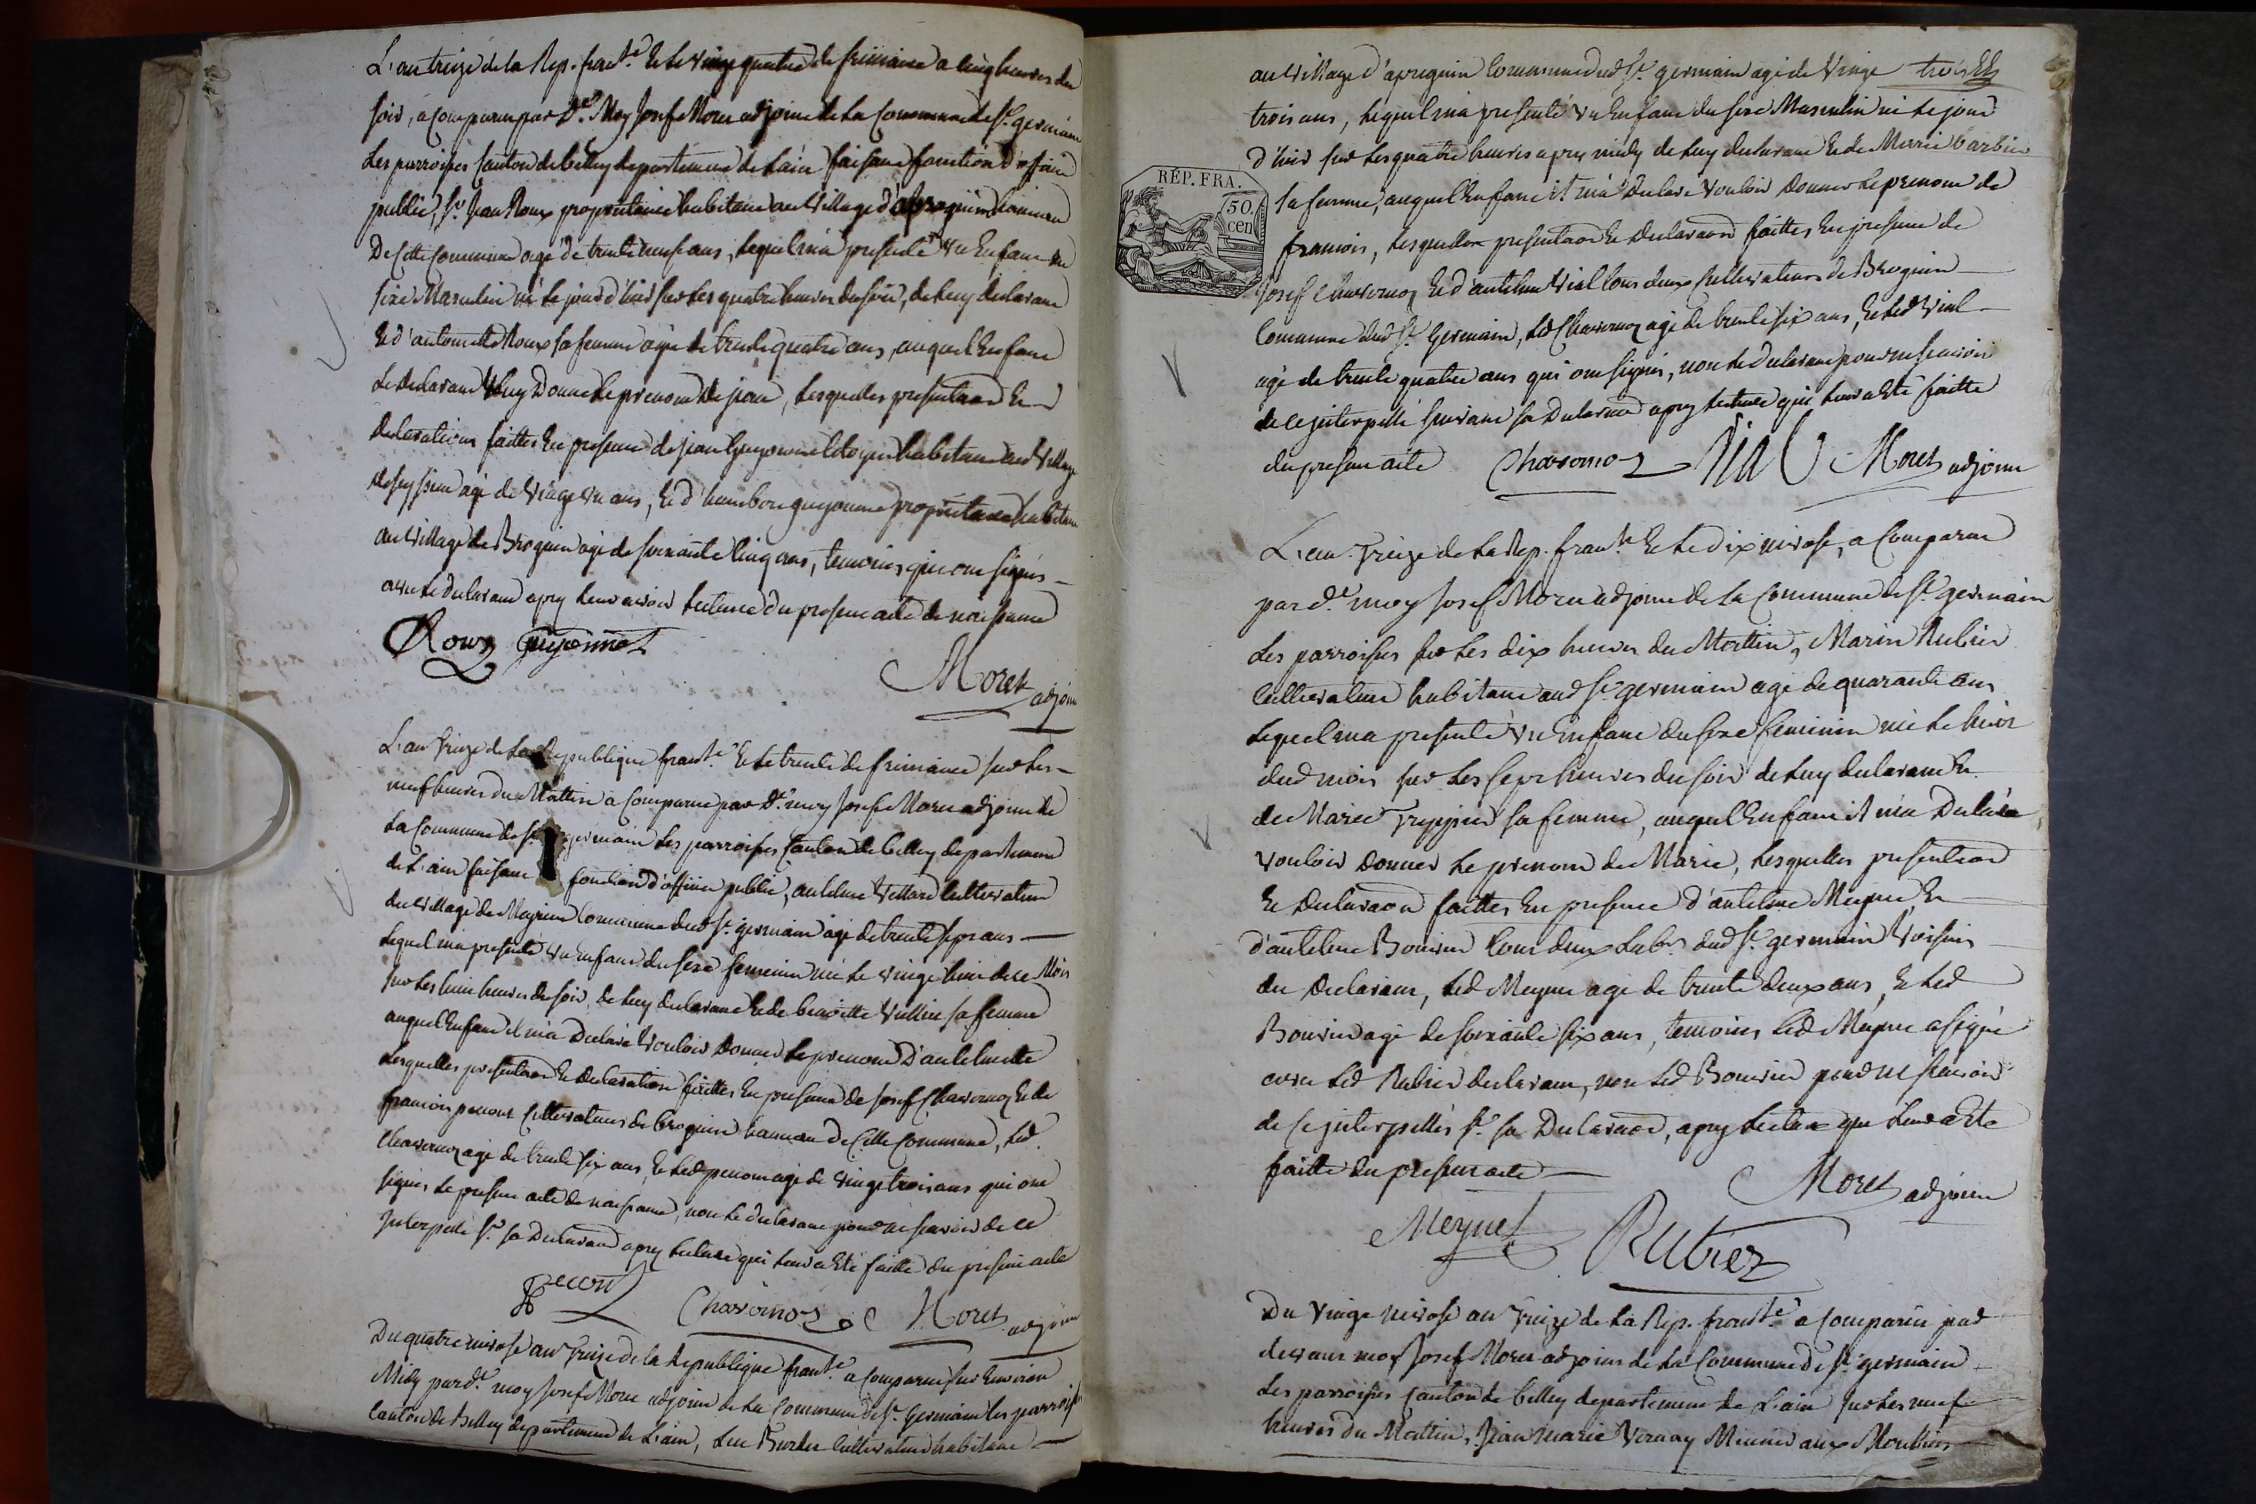 L'an treize de la Rep. franse. Et le vingt quatre de frimaire a cinq heures du
soir, a comparu par dt. Moy Josef Moret adjoint de la Commune de St. germain
Les parroisses Canton de belley departement de Lain faisant fonction d'officier
public, Sr. Jean Roux proprietaire habitant au village d'apregnin hameau
De Cette Commune agé de trente neuf ans, lequel m'a presenté un Enfant du
sexe Masculin né le jour d'hier sur les quatre heures du soir, de luy declarant
Et d'antoinette Roux sa femme agée de trente quatre ans, auquel Enfant
Le declarant luy Donne le prenom de jean, Lesquelles presentaon Et
declaration faittes En presence de jean Guyonnet Citoyen habitant aud village
de seyssieu agé de vingt un ans, Et d'humbert guyonnet proprietaire habitant
au village de Brognin agé de soixante cinq ans, temoins qui ont signés
avec le declarant apry leur avoir lecture du present acte de naissance
Roux guyonnet
Moret adjoint
L'an treize de La Republique franse. Et le trente de frimaire sur les
neuf heures du Mattin a comparu par dt. moy Josef Moret adjoint de
La Commune de St. germain Les parroisses Canton de belley departement
de L'ain faisant fonction d'officier public, antelme Villard cultivateur
du village de Meyrieu Commune dud St. germain agé de trente sept ans
Lequel m'a presenté un Enfant du sexe feminin né le vingt huit de ce Mois
sur les huit heures du soir, de luy declarant Et de benoitte Vullin sa femme
auquel Enfant il m'a Declaré vouloir Donner Le prenom D'antelmette
Lesquelles presentaon Et declaration faittes En presence de josef Chavornoz Et de
francois pecout Cultivateurs de brognin hameau de Cette Commune, led.
Chavornoz agé de trente six ans, Et led pecout agé de vingt trois ans qui ont
signés le present acte de naissance, non le declarant pour ne scavoir de ce
Interpellé St. sa Declaraon apry lecture qui leur a Eté faitte du present acte
Pecout Chavornoz Moret adjoint
Du quatre nivose an Treize de la Republique franse. a comparu sur Environ
Midy par dt. moy Josef Moret adjoint de La Commune de St. Germain les parroisses
Canton de Belley departement de L'ain, Luc Burdet Cultivateur habitant
au village d'apregnin Commune dud St. germain agé de Vingt
trois ans, lequel m'a presenté un Enfant du sexe Masculin né le jour
d'hier sur les quatre heures apry midy de luy declarant Et de Marie barbier
sa femme, auquel Enfant il m'a declaré vouloir Donner le prenom de
francois, Lesquelles presentaon Et declaraon faittes En presence de
Josef Chavornoz Et d'antelme Vial tous deux Cultivateurs de Brognin
Commune dud St. germain, led Chavornoz agé de trente six ans, Et led Vial
agé de trente quatre ans qui ont signés, non le declarant pour ne scavoir
de ce jnterpellé suivant sa Declaraon apry lecture qui leur a Eté faitte
du present acte Chavornoz Vial Moret adjoint
L'an Treize de La Rep. franse. Et le dix nivose, a Comparu
par dt. moy Josef Moret adjoint de La Commune de St. germain
Les parroisses sur les dix heures du Mattin, Marin Rubier
Cultivateur habitant aud St. germain agé de quarante ans
Lequel m'a presenté un Enfant du sexe feminin né le huit
dud mois sur Les sept heures du soir de luy declarant Et
de Marie Trippier sa femme, auquel Enfant il m'a Declaré
vouloir Donner Le prenom de Marie, Lesquelles presentaon
Et declaraon faittes En presence d'antelme Meynet Et
d'antelme Bouvier tous deux Labrs. dud St. germain Voisins
du declarant, led Meynet agé de trente deux ans, Et led
Bouvier agé de soixante six ans, temoins led Meynet a signé
avec led Rubier declarant, non led Bouvier pour ne scavoir
de ce jnterpellés St. sa Declaraon, apry lecture que leur a Eté
faitte du present acte
Moret adjoint
Meynet Rubier
Du vingt nivose an Treize de La Rep. franse. a comparu par
devant moy Josef Moret adjoint de La Commune de St. germain
Les parroisses Canton de belley departement de L'ain sur Les neuf
heures du Mattin, Jean marie Vernay Meunier aux Moulins
RÉP. FRA.
50.
cen